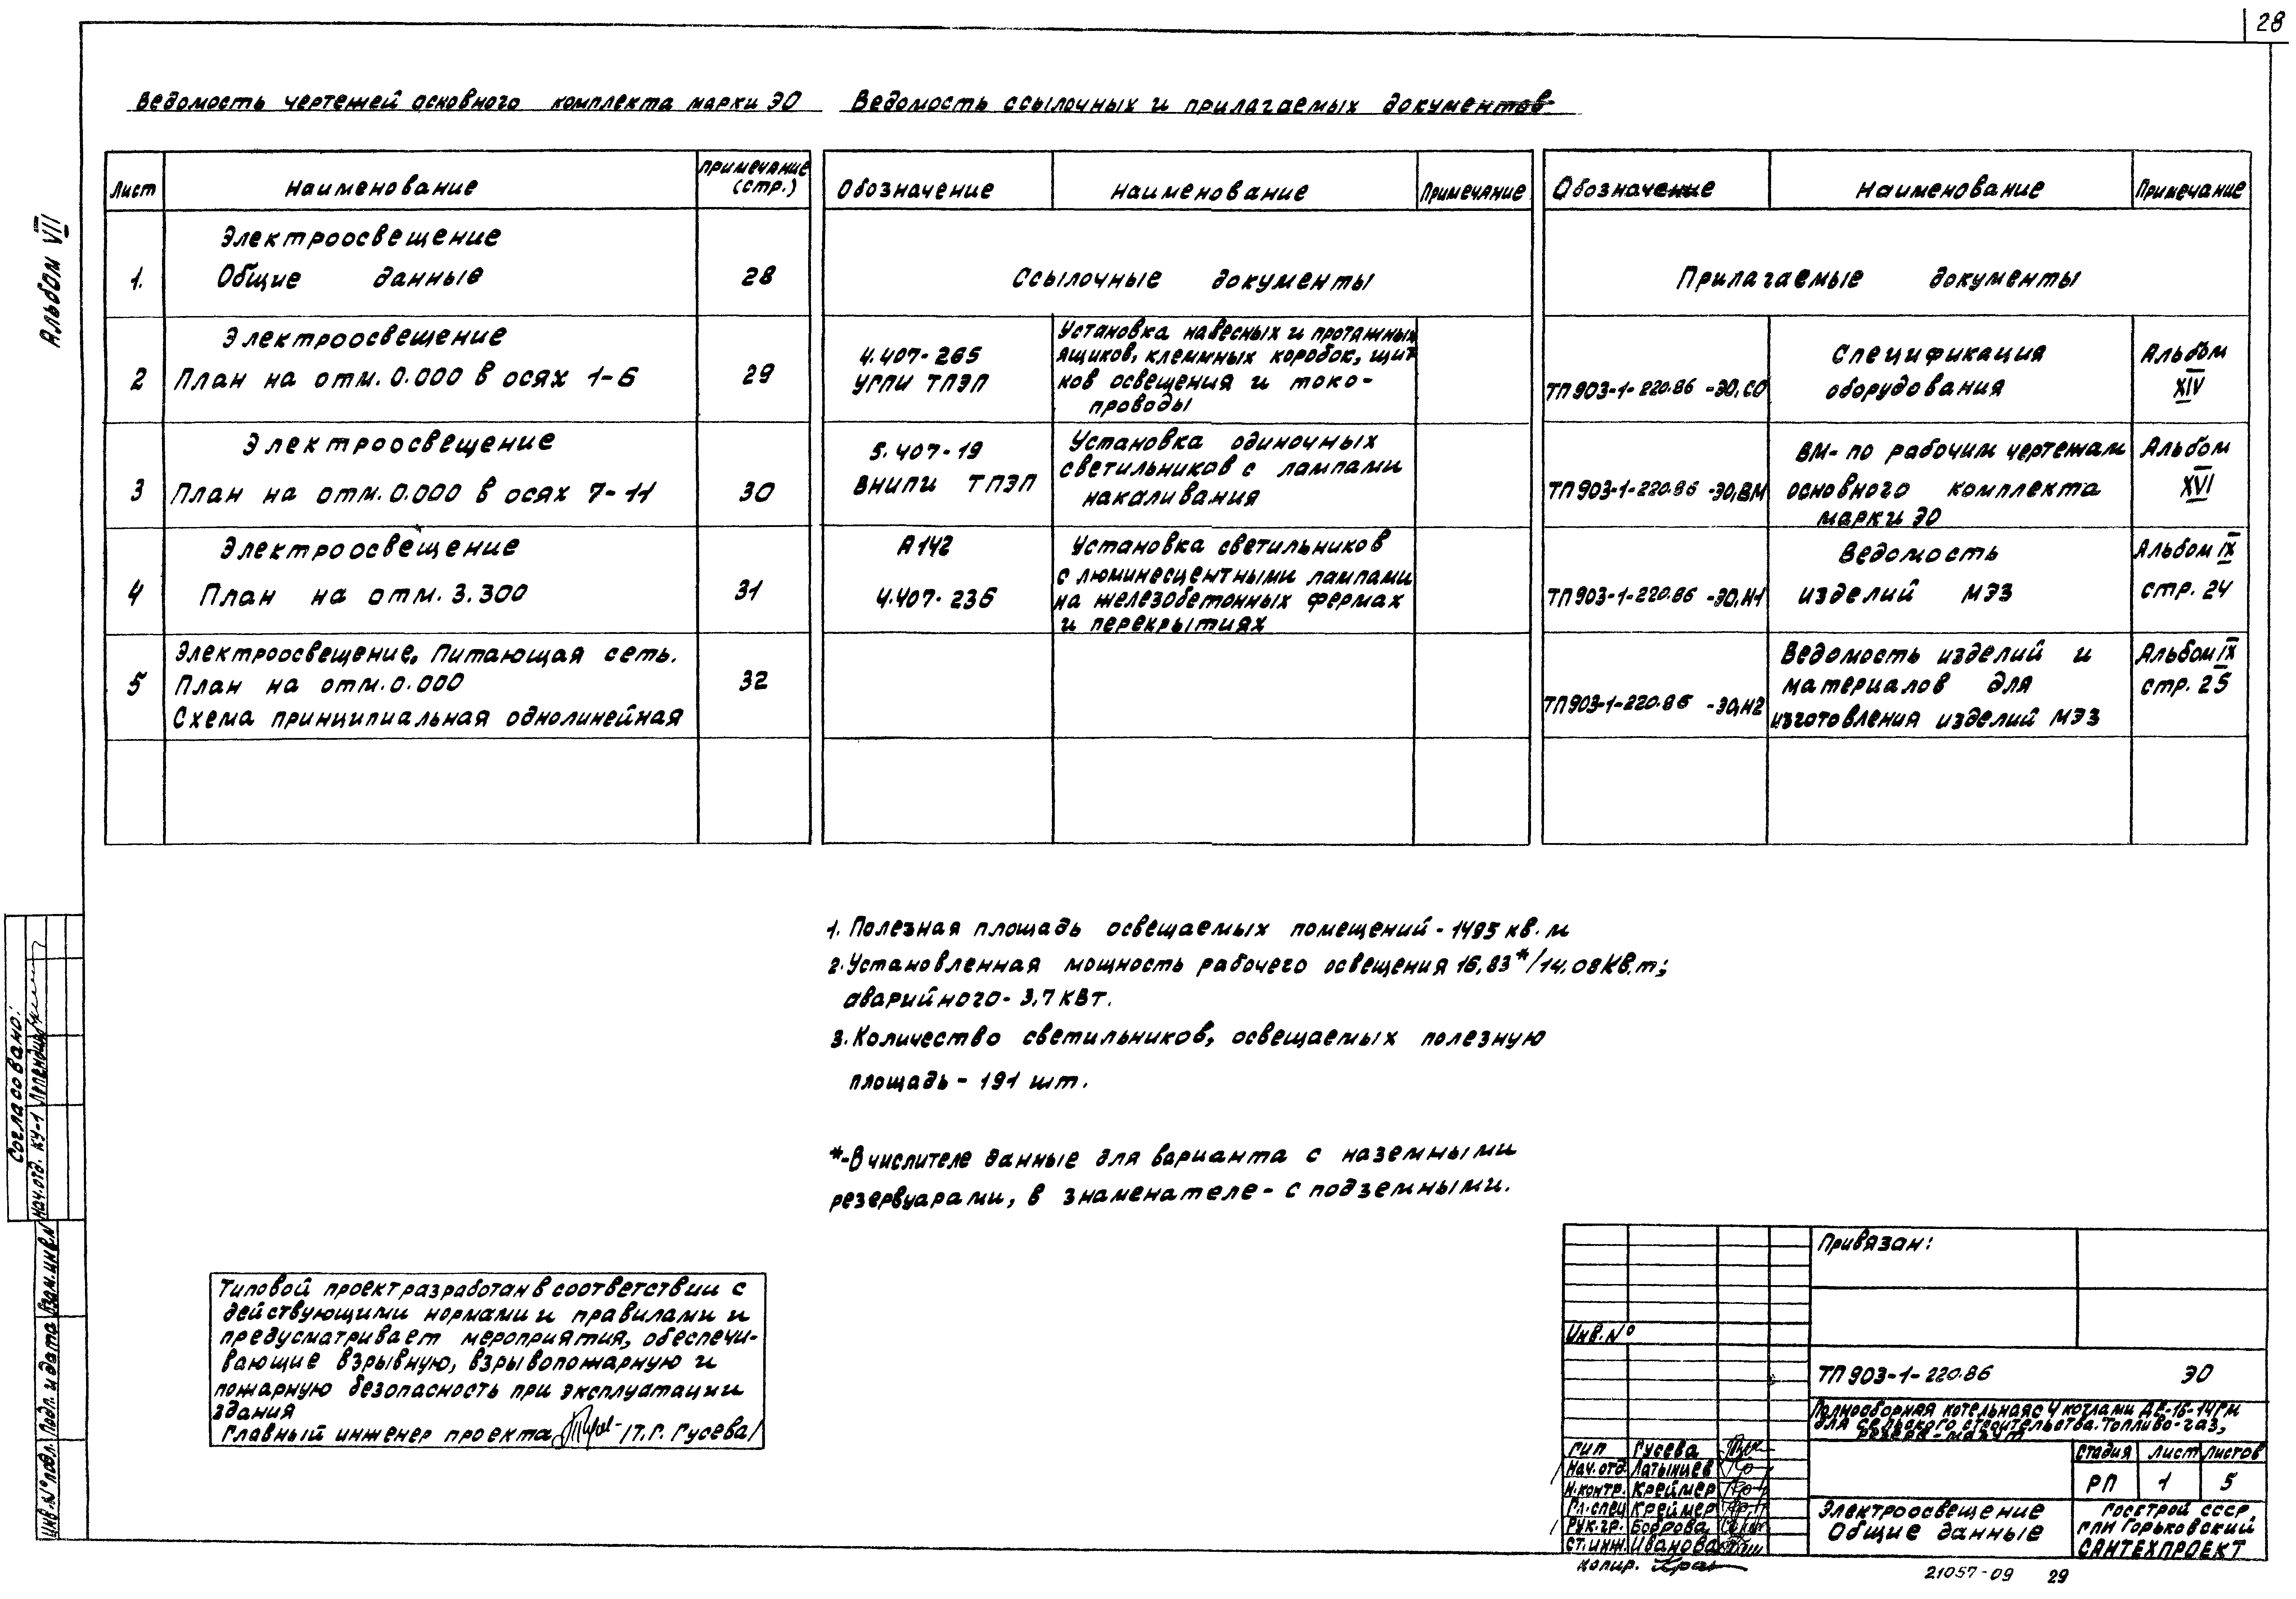 28
Альбом VII
Ведомость чертежей основного комплекта марки ЭО
Лист
Наименование
Примечание
(стр.)
1.
Электроосвещение
Общие данные
28
2
Электроосвещение
План на отм. 0.000 в осях 1-6
29
3
Электроосвещение
План на отм. 0.000 в осях 7-11
30
4
Электроосвещение
План на отм. 3.300
31
5
Электроосвещение. Питающая сеть.
План на отм. 0.000
Схема принципиальная однолинейная
32
Ведомость ссылочных и прилагаемых документов
Обозначение
Наименование
Примечание
Ссылочные документы
4.407-265
УГПИ ТПЭП
Установка навесных и протяжных
ящиков, клеммных коробок, щит
ков освещения и токо-
проводы
5.407-19
ВНИПИ ТПЭП
Установка одиночных
светильников с лампами
накаливания
А142
4.407-236
Установка светильников
с люминесцентными лампами
на железобетонных фермах
и перекрытиях
Обозначение
Наименование
Примечание
Прилагаемые документы
ТП 903-1-220.86 -ЭО,СО
Спецификация
оборудования
Альбом
XIV
ТП 903-1-220.86 -ЭО,ВМ
ВМ- по рабочим чертежам
основного комплекта
марки ЭО
Альбом
XVI
ТП 903-1-220.86 -ЭО,И1
Ведомость
изделий МЭЗ
Альбом IX
стр. 24
ТП 903-1-220.86 -ЭО,И2
Ведомость изделий и
материалов для
изготовления изделий МЭЗ
Альбом IX
стр. 25
1. Полезная площадь освещаемых помещений - 1495 кв. м
2. Установленная мощность рабочего освещения 16,83*/14.08 кв.т;
аварийного - 3,7 кВт.
3. Количество светильников, освещаемых полезную
площадь - 191 шт.
*-В числителе данные для варианта с наземными
резервуарами, в знаменателе - с подземными.
Типовой проект разработан в соответствии с
действующими нормами и правилами и
предусматривает мероприятия, обеспечи-
вающие взрывную, взрывопожарную и
пожарную безопасность при эксплуатации
здания
Главный инженер проекта /Т.Г. Гусева/
Согласовано:
Нач.отд. КУ-1
Инв.№ подл. Подл. и дата Взам.инв.N
Привязан:
Инв.№
ТП 903-1-220.86 ЭО
Полносборная котельная с 4 котлами ДЕ-16-14ГМ
для сельского строительства. Топливо-газ,
резерв-мазут
ГИП Гусева
Нач.отд. Латынцев
Н.контр. Креймер
Гл.спец Креймер
Рук.гр. Боброва
Ст.инж. Иванова
Стадия Лист Листов
РП 1 5
Электроосвещение
Общие данные
Госстрой СССР
ГПИ Горьковский
САНТЕХПРОЕКТ
Копир.
21057-09 29